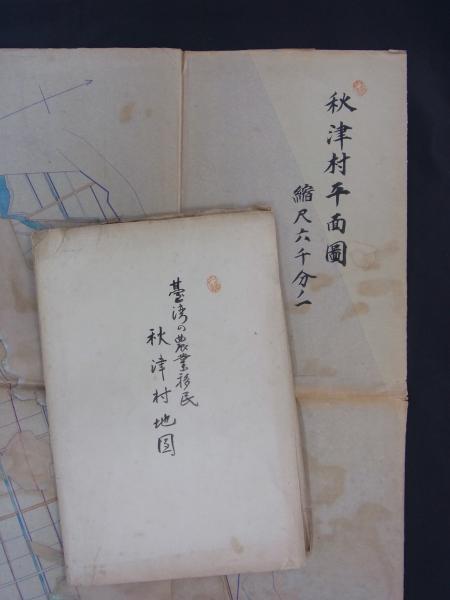 秋津村平面圖
縮尺六千分ノ一
臺湾の農業移民
秋津村地図